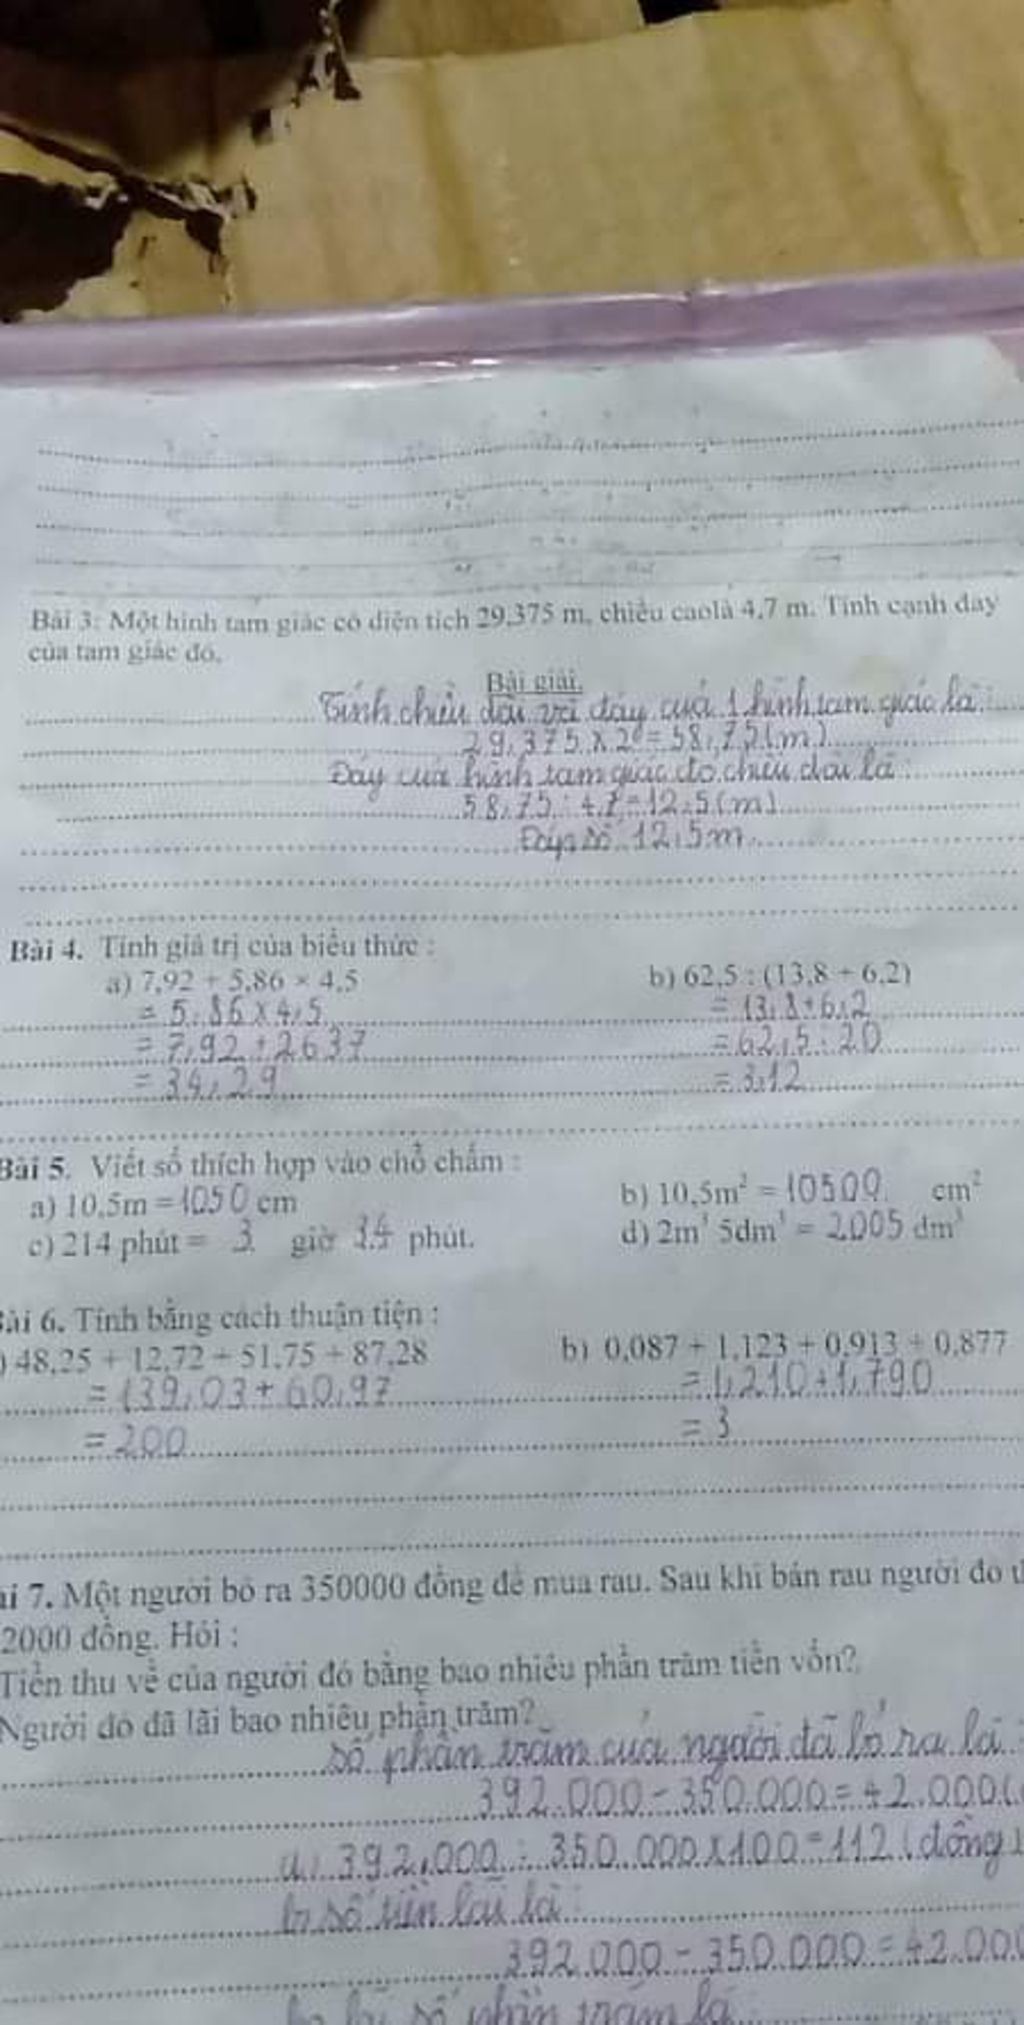 Bài 3: Một hình tam giác có diện tích 29,375 m, chiều caolà 4,7 m. Tính cạnh đáy
của tam giác đó.
Bài giải.
Tính chiều dài và đáy của 1 hình tam giác là:
29,375 x 2 = 58,75 (m)
Đáy của hình tam giác đó chiều dài là:
58,75 : 4,7 = 12,5 (m)
Đáp số 12,5 m
Bài 4. Tính giá trị của biểu thức :
a) 7,92 + 5,86 × 4,5
b) 62,5 : (13,8 + 6,2)
= 5,86 x 4,5
= 13,8 + 6,2
= 7,92 + 2637
= 62,5 : 20
= 34,29
= 3,12
Bài 5. Viết số thích hợp vào chỗ chấm :
a) 10,5m = 1050 cm
b) 10,5m² = 10500 cm²
c) 214 phút = 3 giờ 34 phút.
d) 2m³ 5dm³ = 2005 dm³
Bài 6. Tính bằng cách thuận tiện :
) 48,25 + 12,72 + 51,75 + 87,28
b) 0,087 + 1,123 + 0,913 + 0,877
= 139,03 + 60,97
= 1,210 + 1,790
= 200
= 3
ài 7. Một người bỏ ra 350000 đồng để mua rau. Sau khi bán rau người đó t
2000 đồng. Hỏi :
Tiền thu về của người đó bằng bao nhiêu phần trăm tiền vốn?
Người đó đã lãi bao nhiêu phần trăm?
Số phần trăm của người đã bỏ ra là :
392.000 - 350.000 = 42.000 (
a) 392.000 : 350.000 x 100 = 112 (đồng)
b số tiền lãi là :
392.000 - 350.000 = 42.000
số phần trăm là